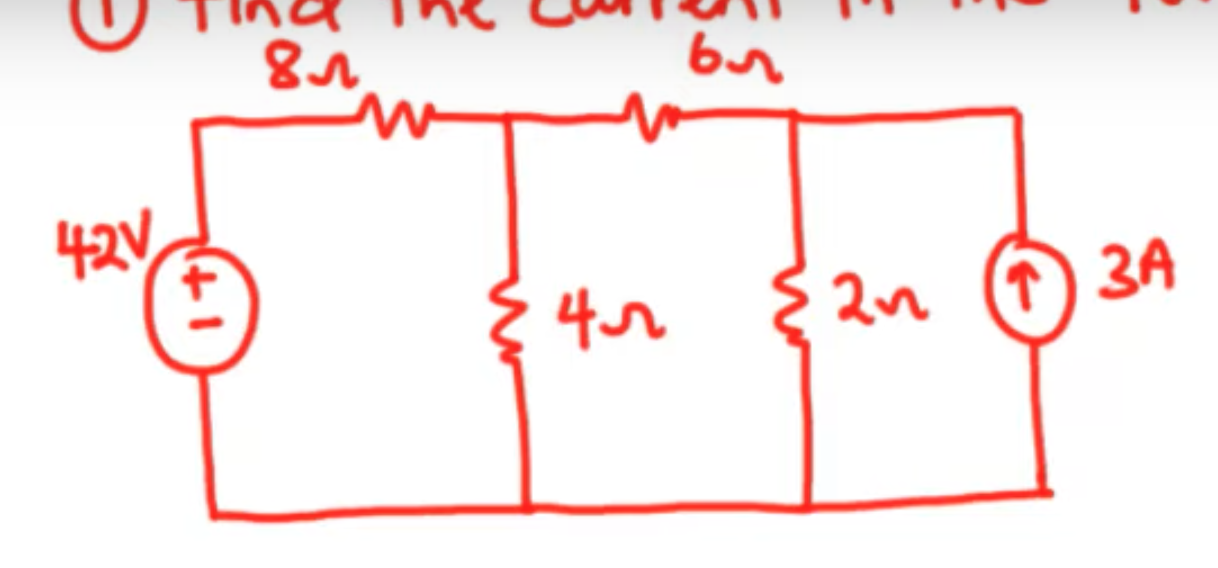 ① Find the current in the
8Ω
6Ω
42V
+
-
4Ω
2Ω
↑
3A